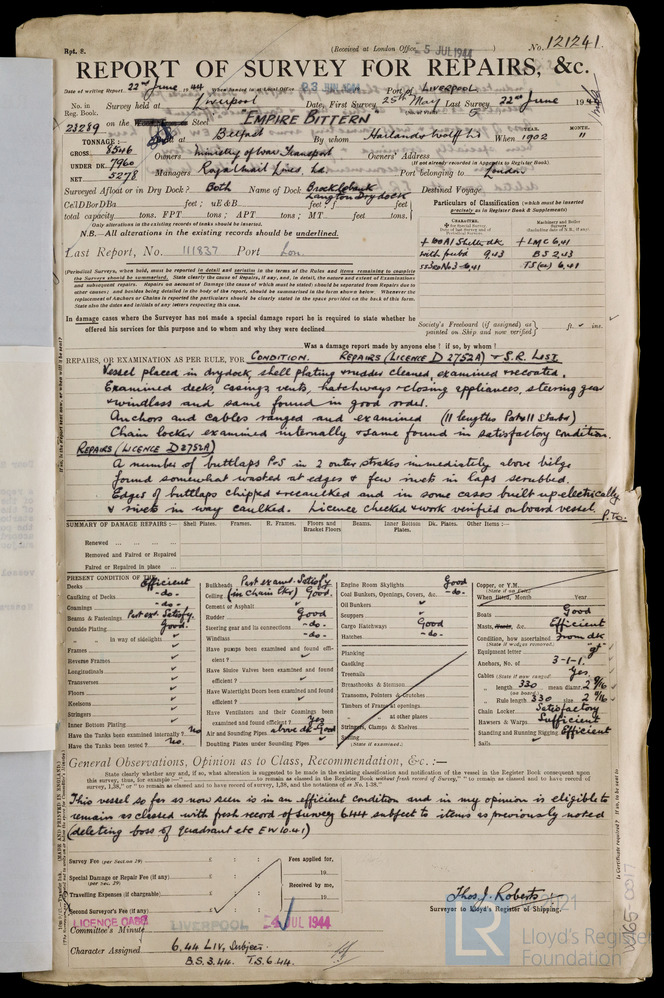 Rpt. 8.
(Received at London Office 5 JUL 1944)
No. 121241.
REPORT OF SURVEY FOR REPAIRS, &c.
Date of writing Report 22nd June 1944 When handed in at Local Office 23 JUN 1944 Port of LIVERPOOL
No. in Reg. Book. Survey held at Liverpool Date, First Survey 25th May Last Survey 22nd June 1944
23289 on the Steel "EMPIRE BITTERN"
TONNAGE:— at Belfast By whom Harland & Wolff Ld When 1902 YEAR. MONTH.
GROSS 8546 Owners Ministry of War Transport Owners' Address
(If not already recorded in Appendix to Register Book)
UNDER DK. 7960
NET 5278 Managers Royal Mail Lines, Ld. Port belonging to London
Surveyed Afloat or in Dry Dock? Both Name of Dock Brocklebank Langton Dry dock Destined Voyage
CelDBorDBa feet; uE&B feet; f feet
total capacity tons. FPT tons; APT tons; MT feet. tons.
Only alterations in the existing records of tanks should be inserted.
N.B.—All alterations in the existing records should be underlined.
Particulars of Classification (which must be inserted precisely as in Register Book & Supplements)
Last Report, No. 111837 Port Lon.
+ 100A1 Shelter dk + LMC 6,41
with freebd 9,43 BS 2,43
SSNo3-6,41 TS(CL) 6,41
(Periodical Surveys, when held, must be reported in detail and seriatim in the terms of the Rules and items remaining to complete
the Surveys should be summarised. State clearly the cause of Repairs, if any, and, in detail, the nature and extent of Examinations
and subsequent repairs. Repairs on account of Damage (the cause of which must be stated) should be separated from Repairs due to
other causes; and besides being detailed in the body of the report, should be summarised in the form shown below. Whenever the
replacement of Anchors or Chains is reported the particulars should be clearly stated in the space provided on the back of this form.
State also the dates and initials of any letters respecting this case.
In damage cases where the Surveyor has not made a special damage report he is required to state whether he
offered his services for this purpose and to whom and why they were declined
Society's Freeboard (if assigned) as painted on Ship and now verified ft. ins.
Was a damage report made by anyone else? if so, by whom?
REPAIRS, OR EXAMINATION AS PER RULE, FOR CONDITION. REPAIRS (LICENCE D 2752A) & S.R. LIST.
Vessel placed in drydock, shell plating & rudder cleaned, examined & recoated.
Examined decks, casings, vents, hatchways & closing appliances, steering gear
& windlass and same found in good order.
Anchors and cables ranged and examined (11 lengths Port & 11 Starbd)
Chain locker examined internally & same found in satisfactory condition.
REPAIRS (LICENCE D 2752A)
A number of buttlaps P&S in 2 outer strakes immediately above bilge
found somewhat wasted at edges & few rivets in laps scrubbed.
Edges of buttlaps chipped & recaulked and in some cases built up electrically
& rivets in way caulked. Licence checked & work verified onboard vessel.
P.T.O.
SUMMARY OF DAMAGE REPAIRS:— Shell Plates. Frames. R. Frames. Floors and Bracket Floors Beams. Inner Bottom Plates. Dk. Plates. Other Items:—
Renewed
Removed and Faired or Repaired
Faired or Repaired in place
PRESENT CONDITION OF THE
Decks Efficient
Caulking of Decks -do-
Coamings -do-
Beams & Fastenings Part exd. Satisfy.
Outside Plating Good.
" " in way of sidelights
Frames
Reverse Frames
Longitudinals
Transverses
Floors
Keelsons
Stringers
Inner Bottom Plating
Have the Tanks been examined internally? No
Have the Tanks been tested? no.
Bulkheads Part examd. Satisfy
Ceiling (in Chain Lkr) Good.
Cement or Asphalt
Rudder Good
Steering gear and its connections -do-
Windlass -do-
Have pumps been examined and found efficient?
Have Sluice Valves been examined and found efficient?
Have Watertight Doors been examined and found efficient?
Have Ventilators and their Coamings been examined and found efficient? Yes
Air and Sounding Pipes above dk Good
Doubling Plates under Sounding Pipes
Engine Room Skylights Good
Coal Bunkers, Openings, Covers, &c. -do-
Oil Bunkers
Scuppers
Cargo Hatchways Good
Hatches -do-
Planking
Caulking
Treenails
Breasthooks & Stemson
Transoms, Pointers & Crutches
Timbers of Frame at openings
" " at other places
Stringers, Clamps & Shelves
Salting (State if examined.)
Copper, or Y.M.
(State if on Felt.)
When fitted, Month Year
Boats Good
Masts, &c. Efficient
Condition, how ascertained from dk
(State if wedges removed.)
Equipment letter gt
Anchors, No. of 3-1-1.
Cables (State if now ranged) Yes
" length 330 mean diamr. 2 9/16
(on board)
" Rule length 330 size 2 9/16
Chain Locker Satisfactory
Hawsers & Warps Sufficient
Standing and Running Rigging Efficient
Sails
General Observations, Opinion as to Class, Recommendation, &c.:—
State clearly whether any and, if so, what alteration is suggested to be made in the existing classification and notification of the vessel in the Register Book consequent upon
this survey, thus, for example
This vessel so far as now seen is in an efficient condition and in my opinion is eligible to
remain as classed with fresh record of survey 6.44 subject to items as previously noted
(deleting boss of quadrant etc EW 10.41)
Survey Fee (per Section 29) £ : :
Special Damage or Repair Fee (if any) (per sec. 29) £ : :
Travelling Expenses (if chargeable) £ : :
Second Surveyor's Fee (if any) £ : :
Fees applied for, 19
Received by me, 19
Thos. J. Roberts
Surveyor to Lloyd's Register of Shipping.
LICENCE CASE
Committee's Minute LIVERPOOL 4 JUL 1944
Character Assigned 6.44 LIV, Subject.
B.S. 3.44. T.S. 6.44.
W665-0017
LR
2021
Lloyd's Register
Foundation